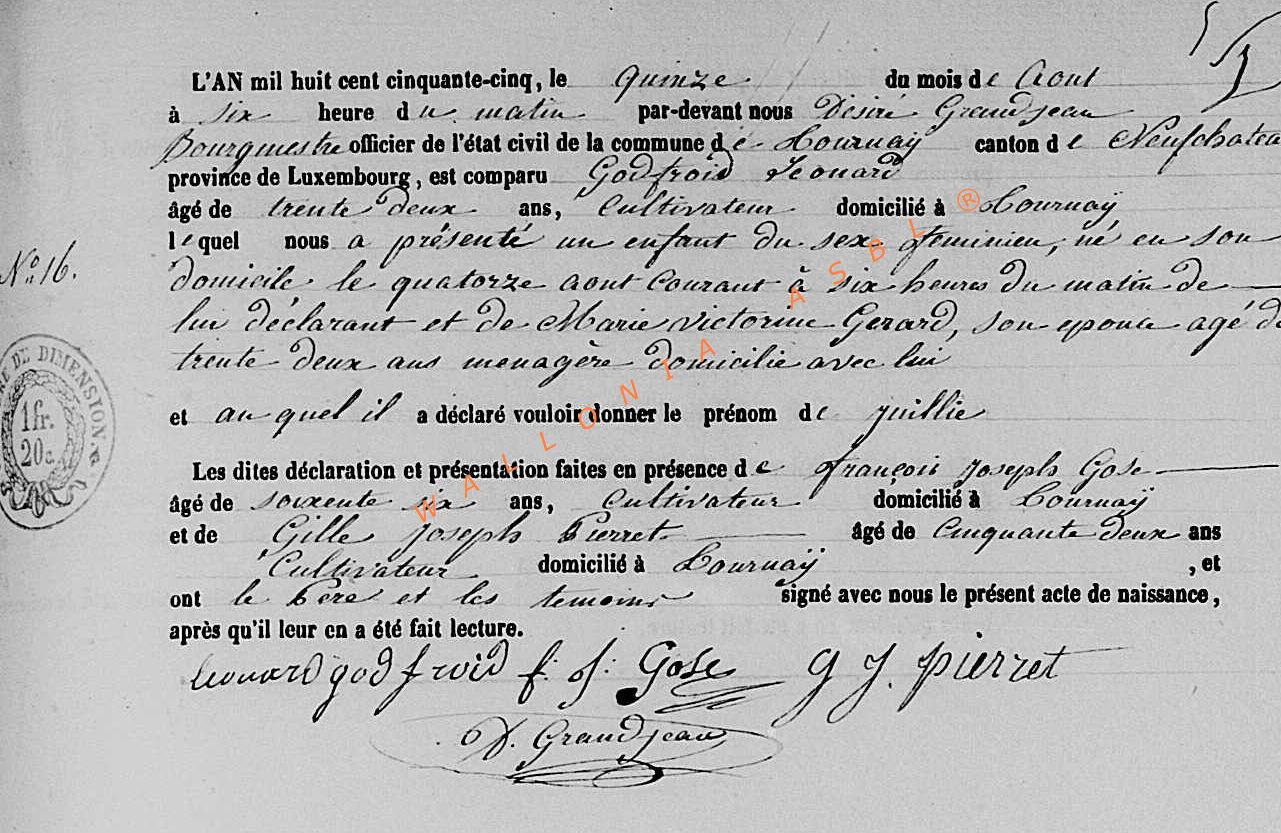 L'AN mil huit cent cinquante-cinq, le quinze du mois de Aout
à six heure du matin par-devant nous Désiré Grandjean
Bourgmestre officier de l'état civil de la commune de Tournaÿ canton de Neufchatea
province de Luxembourg, est comparu Godfroid Léonard
âgé de trente deux ans, Cultivateur domicilié à Tournaÿ
lequel nous a présenté un enfant du sex feminien, né en son
No 16.
domicile le quatorze aout courant à six heures du matin de
lui déclarant et de Marie Victorine Gerard, son epouce agé de
trente deux ans menagère domicilie avec lui
et au quel il a déclaré vouloir donner le prénom de juillie
Les dites déclaration et présentation faites en présence de françois joseph Gose
âgé de soixente six ans, Cultivateur domicilié à Tournaÿ
et de Gille joseph Pierret âgé de Cinquante deux ans
Cultivateur domicilié à Tournaÿ , et
ont le Père et les temoins signé avec nous le présent acte de naissance,
après qu'il leur en a été fait lecture.
Leonard godfroid f. j: Gose g J. pierret
D. Grandjean
DE DIMENSION
1fr.
20c.
WALLONIA ASBL ®